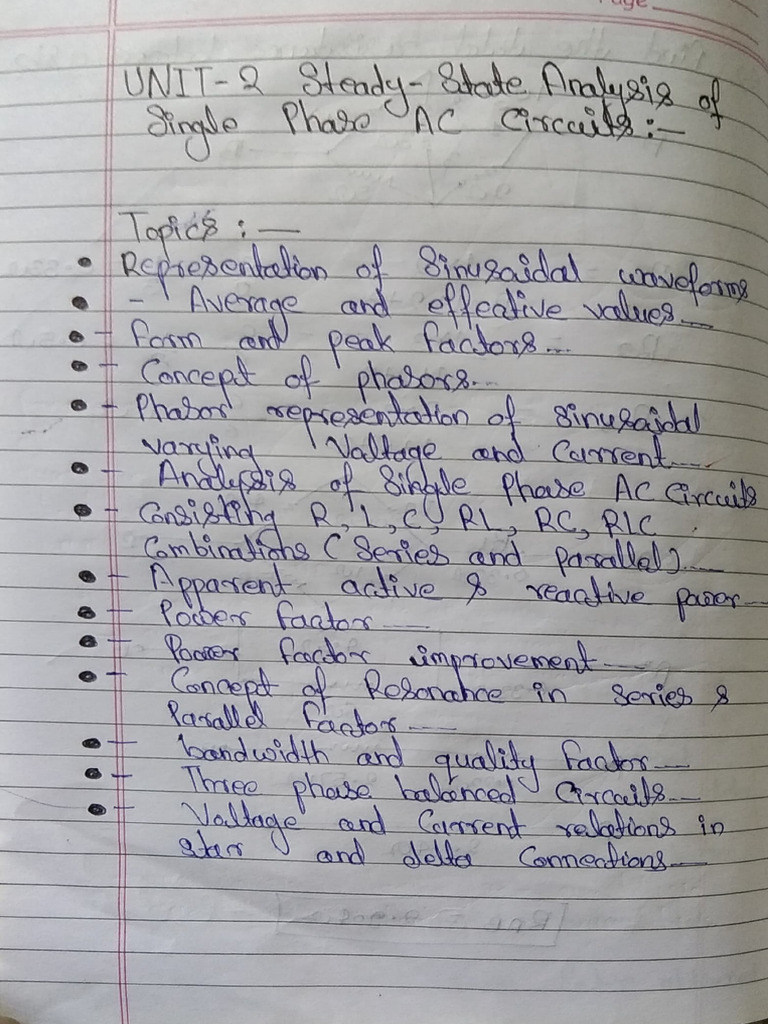 Page
UNIT-2 Steady-State Analysis of
Single Phase AC Circuits:-
Topics :-
• Representation of Sinusoidal waveforms
• - Average and effective values...
• - form and peak factors...
• - Concept of phasors...
• - Phasor representation of sinusoidal
varying Voltage and Current...
• - Analysis of Single Phase AC Circuits
• - Consisting R, L, C, RL, RC, RLC
Combinations (Series and parallel)...
• - Apparent active & reactive power...
• - Power factor...
• - Power factor improvement...
• - Concept of Resonance in series &
Parallel factor...
• - bandwidth and quality factor...
• - Three phase balanced Circuits...
• - Voltage and Current relations in
star and delta Connections...